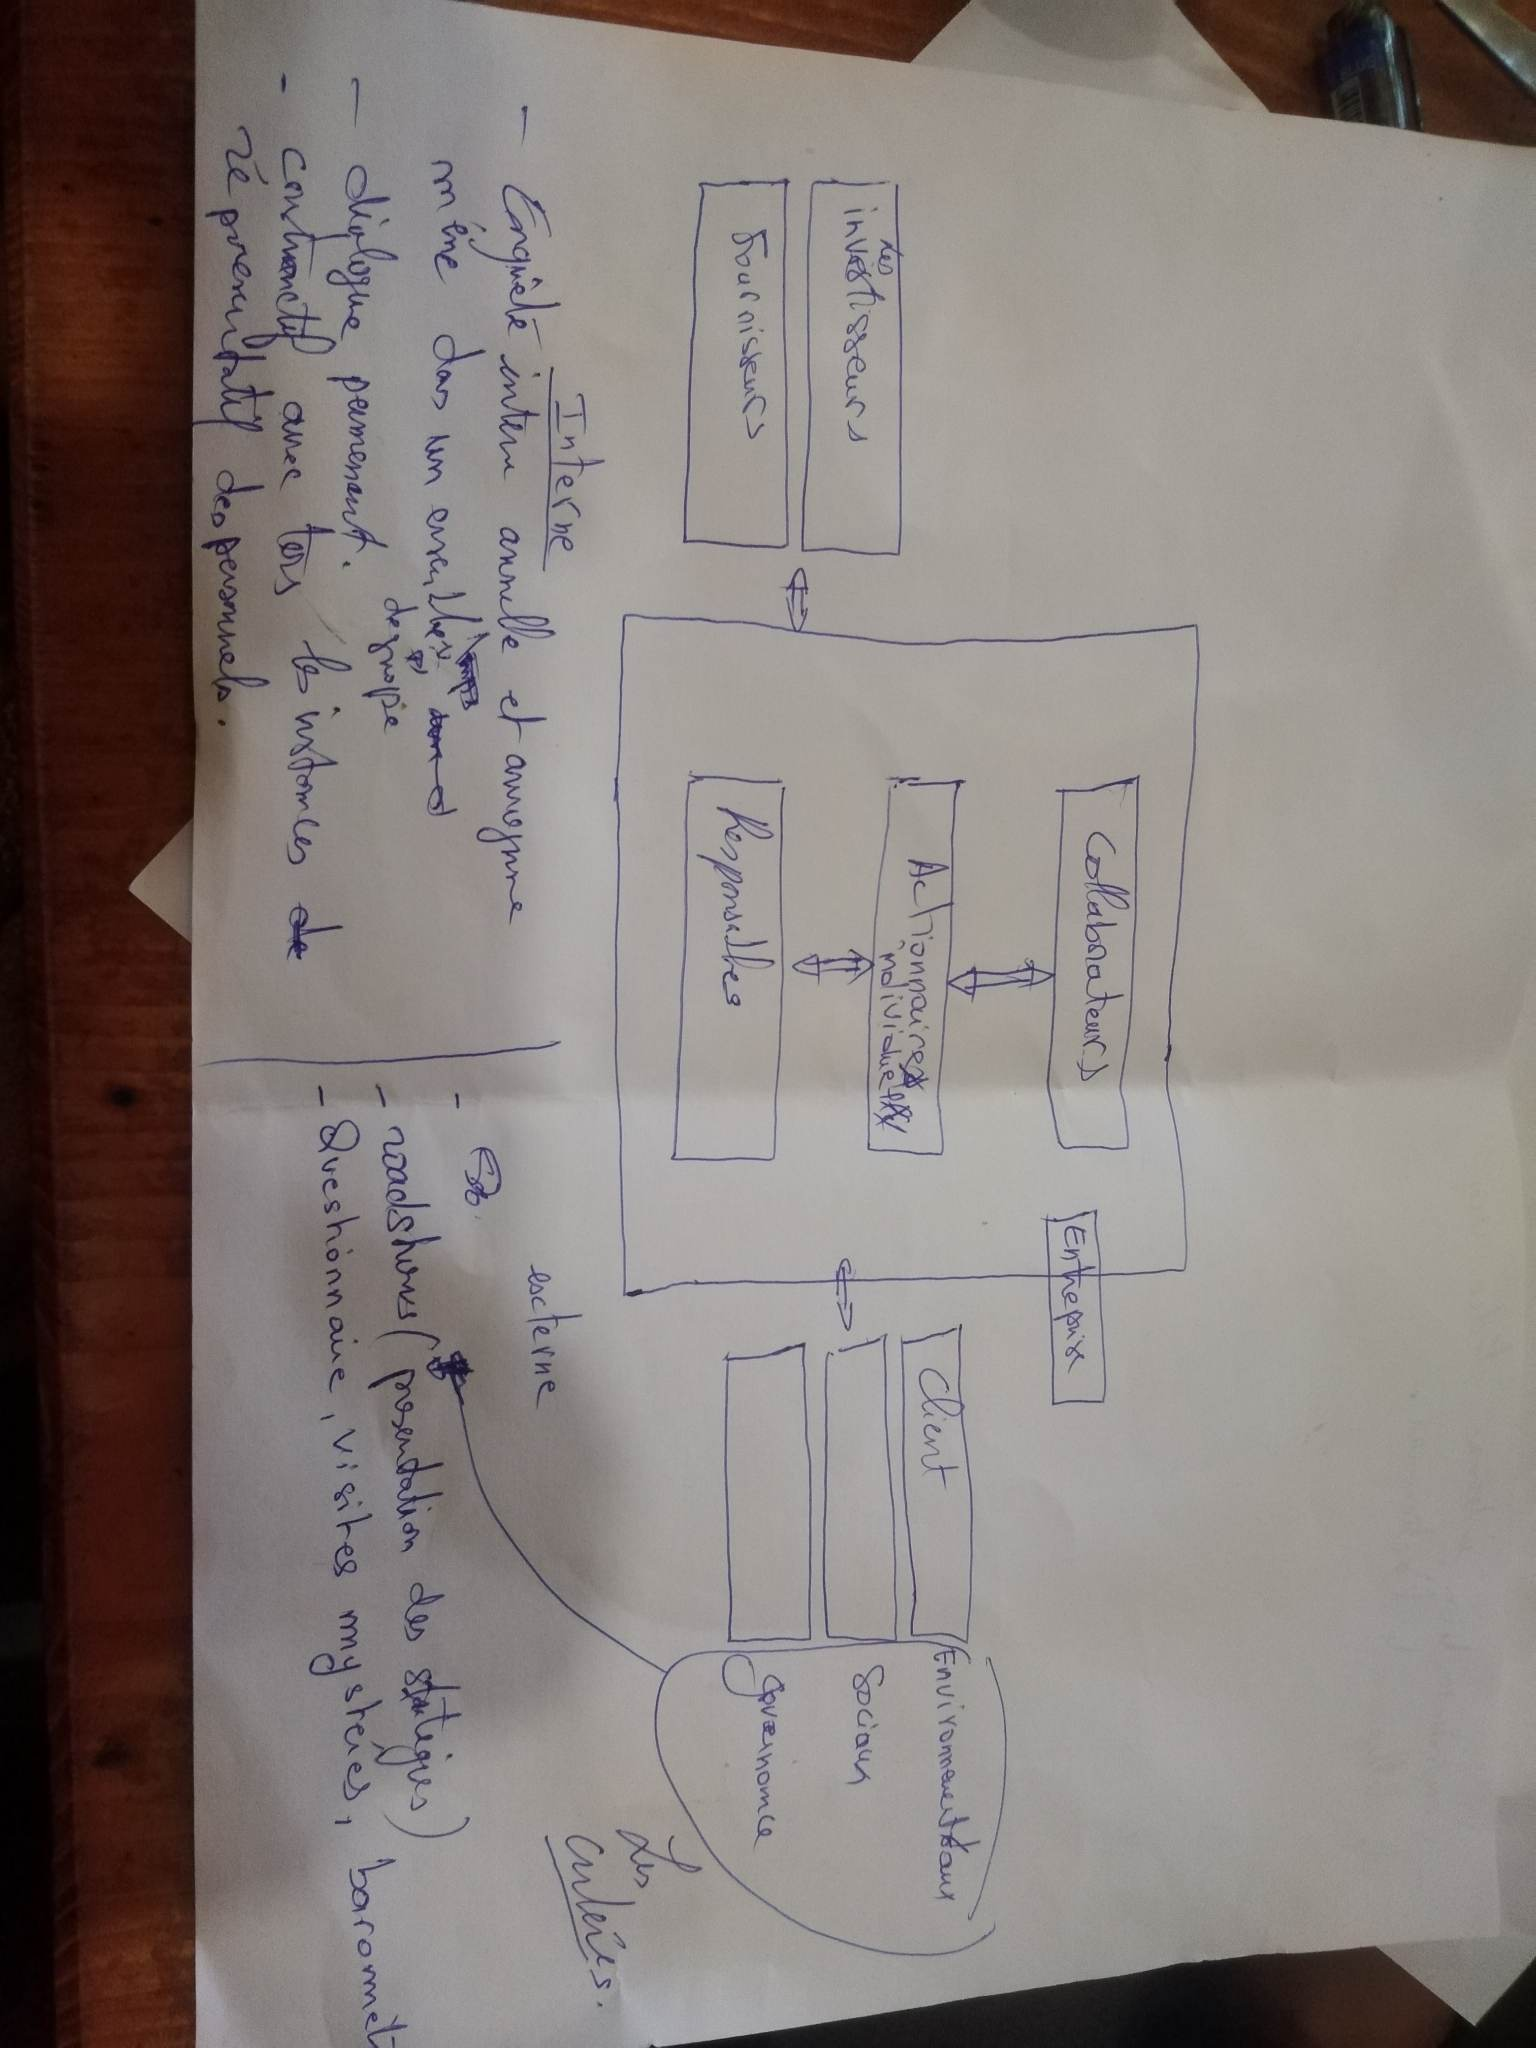 Entreprise
Collaborateurs
Actionnaires
individuels
Responsables
les
investisseurs
Fournisseurs
Client
Environnementaux
Sociaux
Gouvernance
Les
critères.
Interne
- Enquête interne annuelle et anonyme
mène dans un
de groupe
- dialogue permanent.
- constructif avec tous les instances de
représentatif des personnels.
externe
-
- roadshows (présentation des stratégies)
- Questionnaire, visites mystères, baromèt